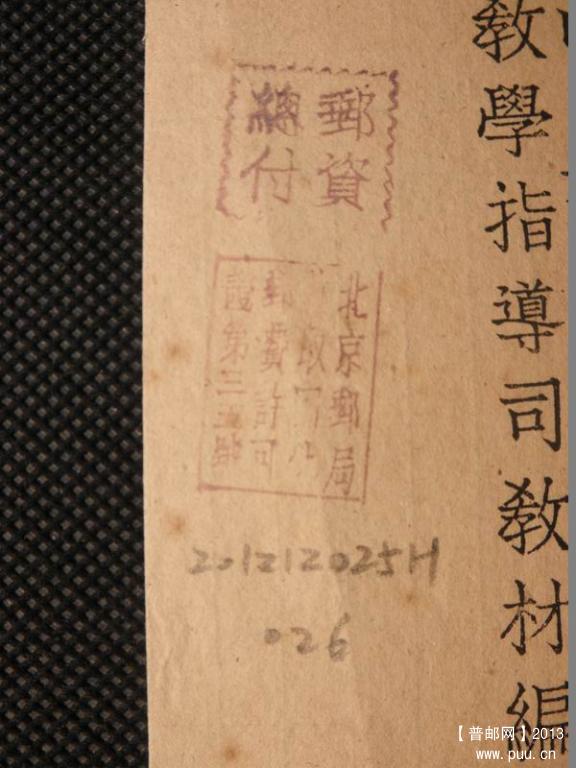 教學指導司教材編
郵資
總付
北京郵局
郵費許可
證第三五號
201212025H
026
【普邮网】2013
www.puu.cn